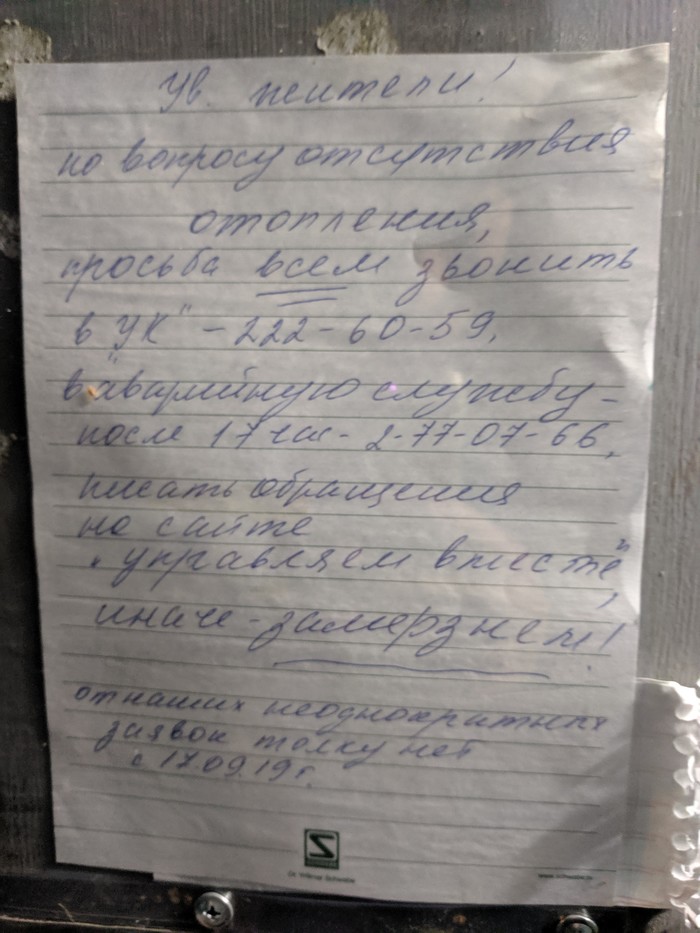 Ув. жители!
по вопросу отсутствия
отопления,
просьба всем звонить
в "УК" - 222-60-59,
в аварийную службу -
после 17 час - 2-77-07-66,
писать обращения
на сайте
"управляем вместе",
иначе - замерзнем!
от наших неоднократных
заявок толку нет
с 17.09.19 г.
Dr. Willmar Schwabe
www.schwabe.ru